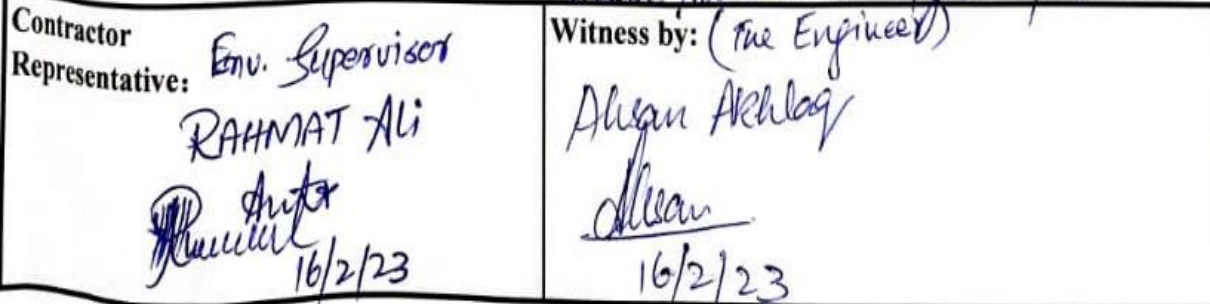 Contractor
Representative: Env. Supervisor
RAHMAT Ali
16/2/23
Witness by: (The Engineer)
Ahsan Akhlaq
Ahsan
16/2/23